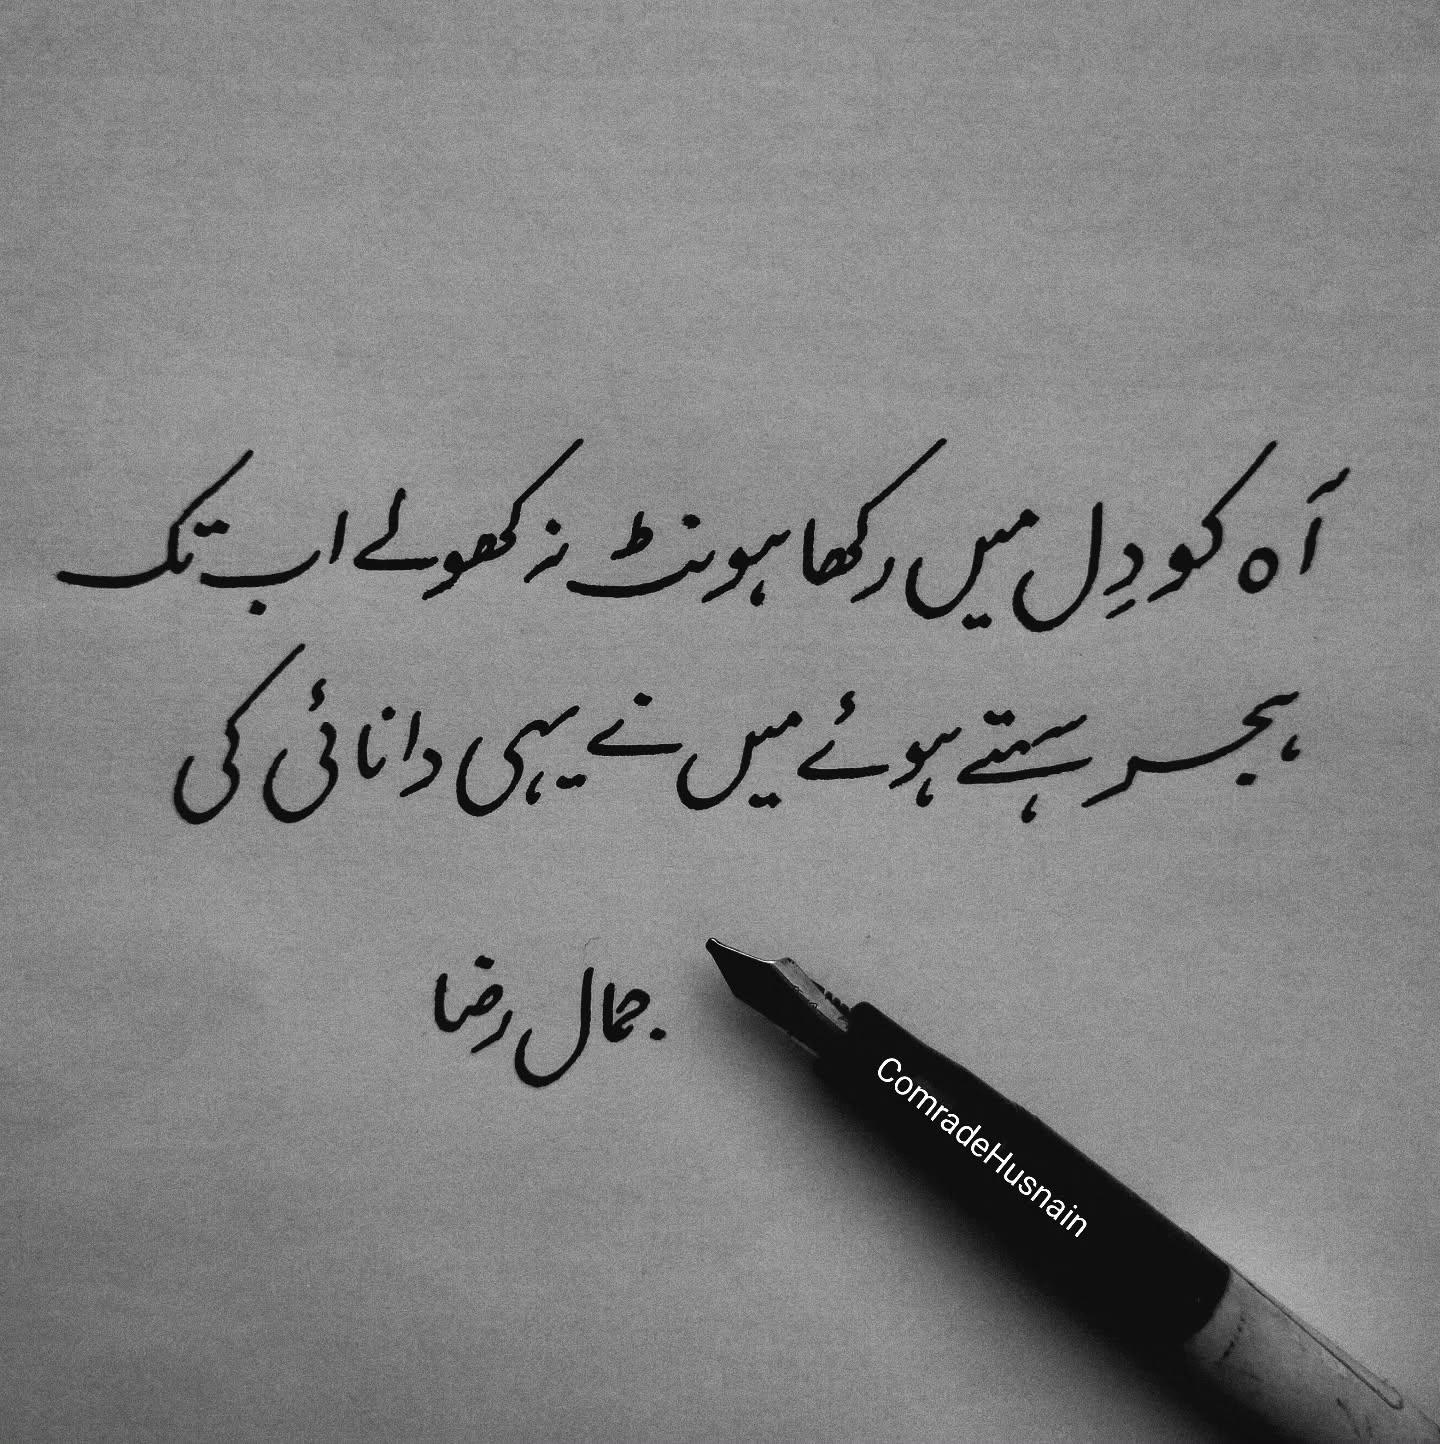 آہ کو دِل میں رکھا ہونٹ نہ کھولے اب تک
ہجر سہتے ہوئے میں نے یہی دانائی کی
جمال رضا
ComradeHusnain